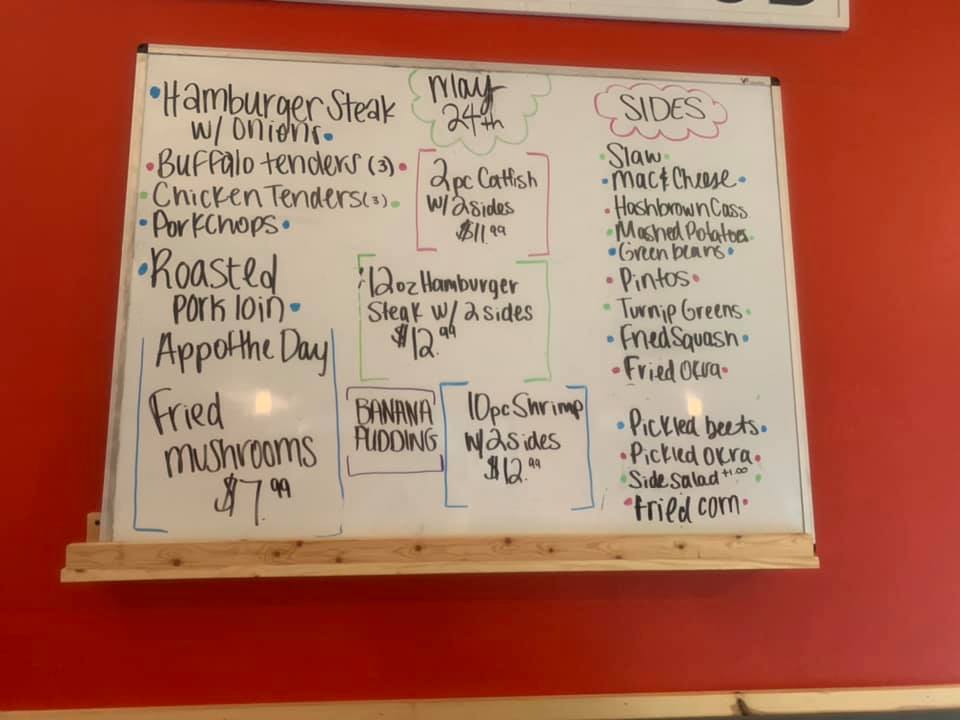 Hamburger Steak
w/ onions
Buffalo tenders (3)
Chicken Tenders (3)
Porkchops
Roasted
pork loin
App of the Day
Fried
mushrooms
$7.99
May
24th
2pc Catfish
w/ 2 sides
$11.99
12oz Hamburger
Steak w/ 2 sides
$12.99
BANANA
PUDDING
10pc Shrimp
w/ 2 sides
$12.99
SIDES
Slaw
Mac & Cheese
Hashbrown Cass
Mashed Potatoes
Green beans
Pintos
Turnip Greens
Fried Squash
Fried Okra
Pickled beets
Pickled Okra
Side Salad +1.00
Fried corn